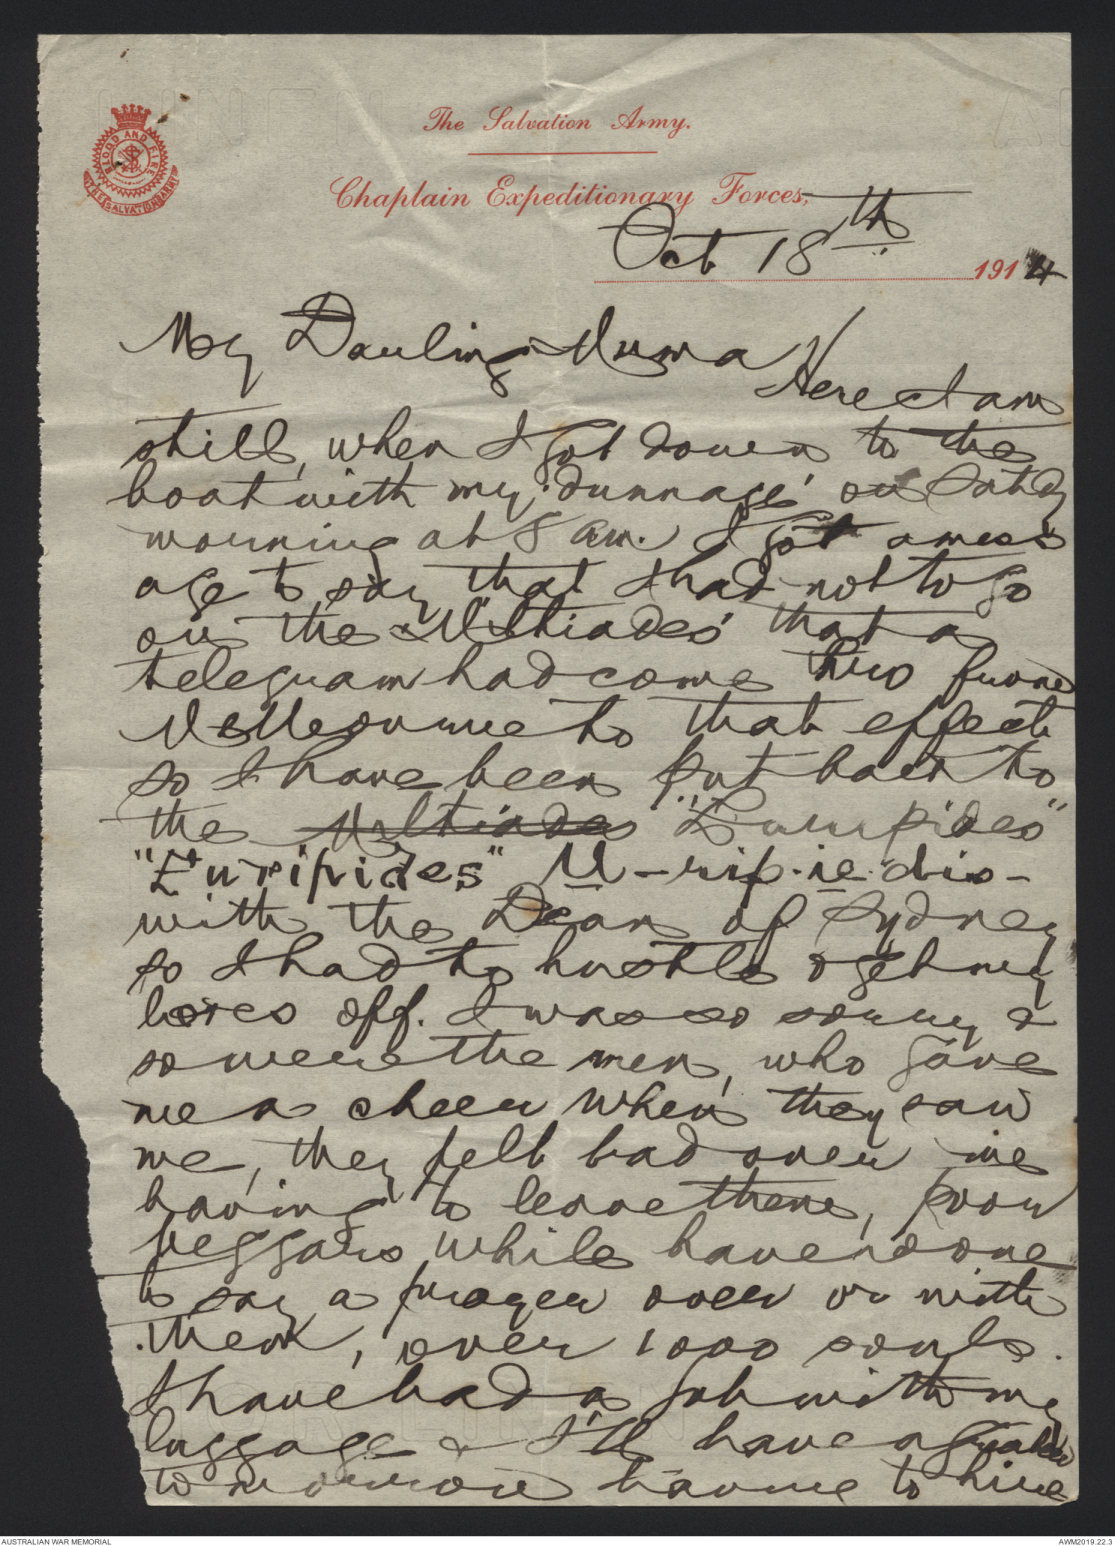 The Salvation Army.
Chaplain Expeditionary Forces,
BLOOD AND FIRE
THE SALVATION ARMY
Oct 18th 1914
My Darling Muma
Here I am
still, when I got down to the
boat with my 'dunnage' on Satdy
morning at 8 am. I got a mess
age to say that I had not to go
on the "Miltiades" that a
telegram had come thro from
Melbourne to that effect
so I have been put back to
the Miltiades "Euripides"
"Euripides" U-rip-ie-dis-
with the Dean of Sydney
so I had to hustle & get my
boxes off. I was so sorry &
so were the men, who gave
me a cheer when they saw
me, they felt bad over me
having to leave them, poor
beggars while have no one
to say a prayer over or with
them, over 1000 souls.
I have had a job with my
luggage & I'll have a
to morrow having to hire
AUSTRALIAN WAR MEMORIAL
AWM2019.22.3